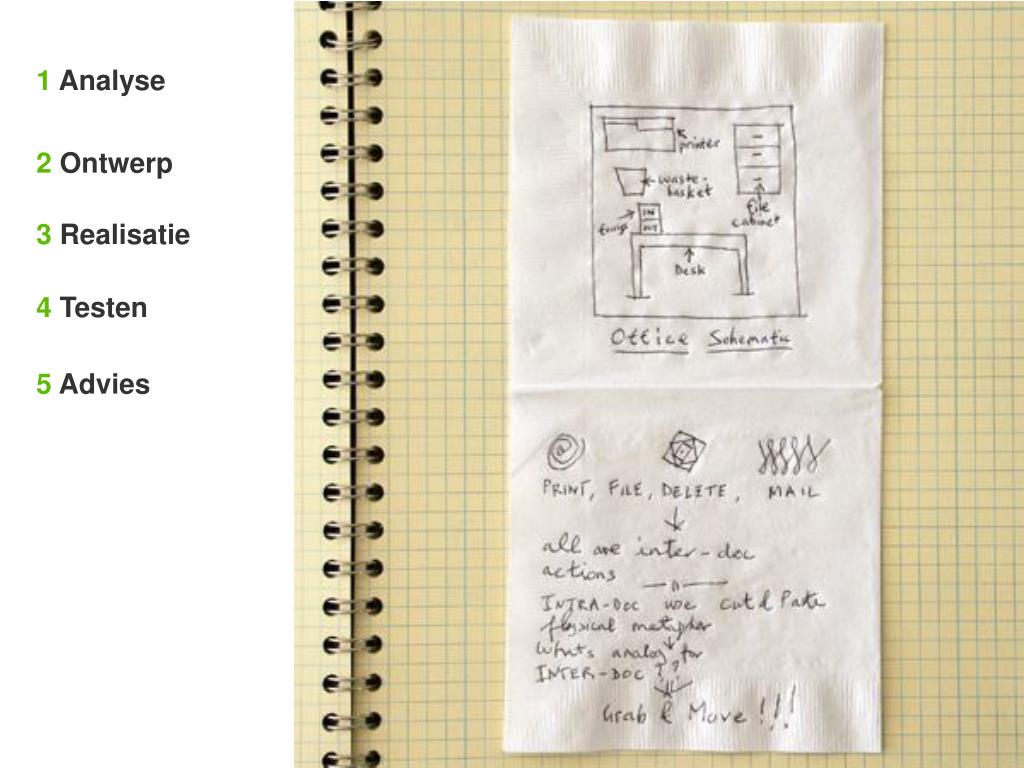 1 Analyse
2 Ontwerp
3 Realisatie
4 Testen
5 Advies
printer
waste-
basket
file
cabinet
IN
OUT
Desk
Office Schematic
PRINT, FILE, DELETE, MAIL
all are inter-doc
actions
INTRA-DOC use cut & Paste
physical metaphor
Whats analog for
INTER-DOC ??
Grab & Move !!!